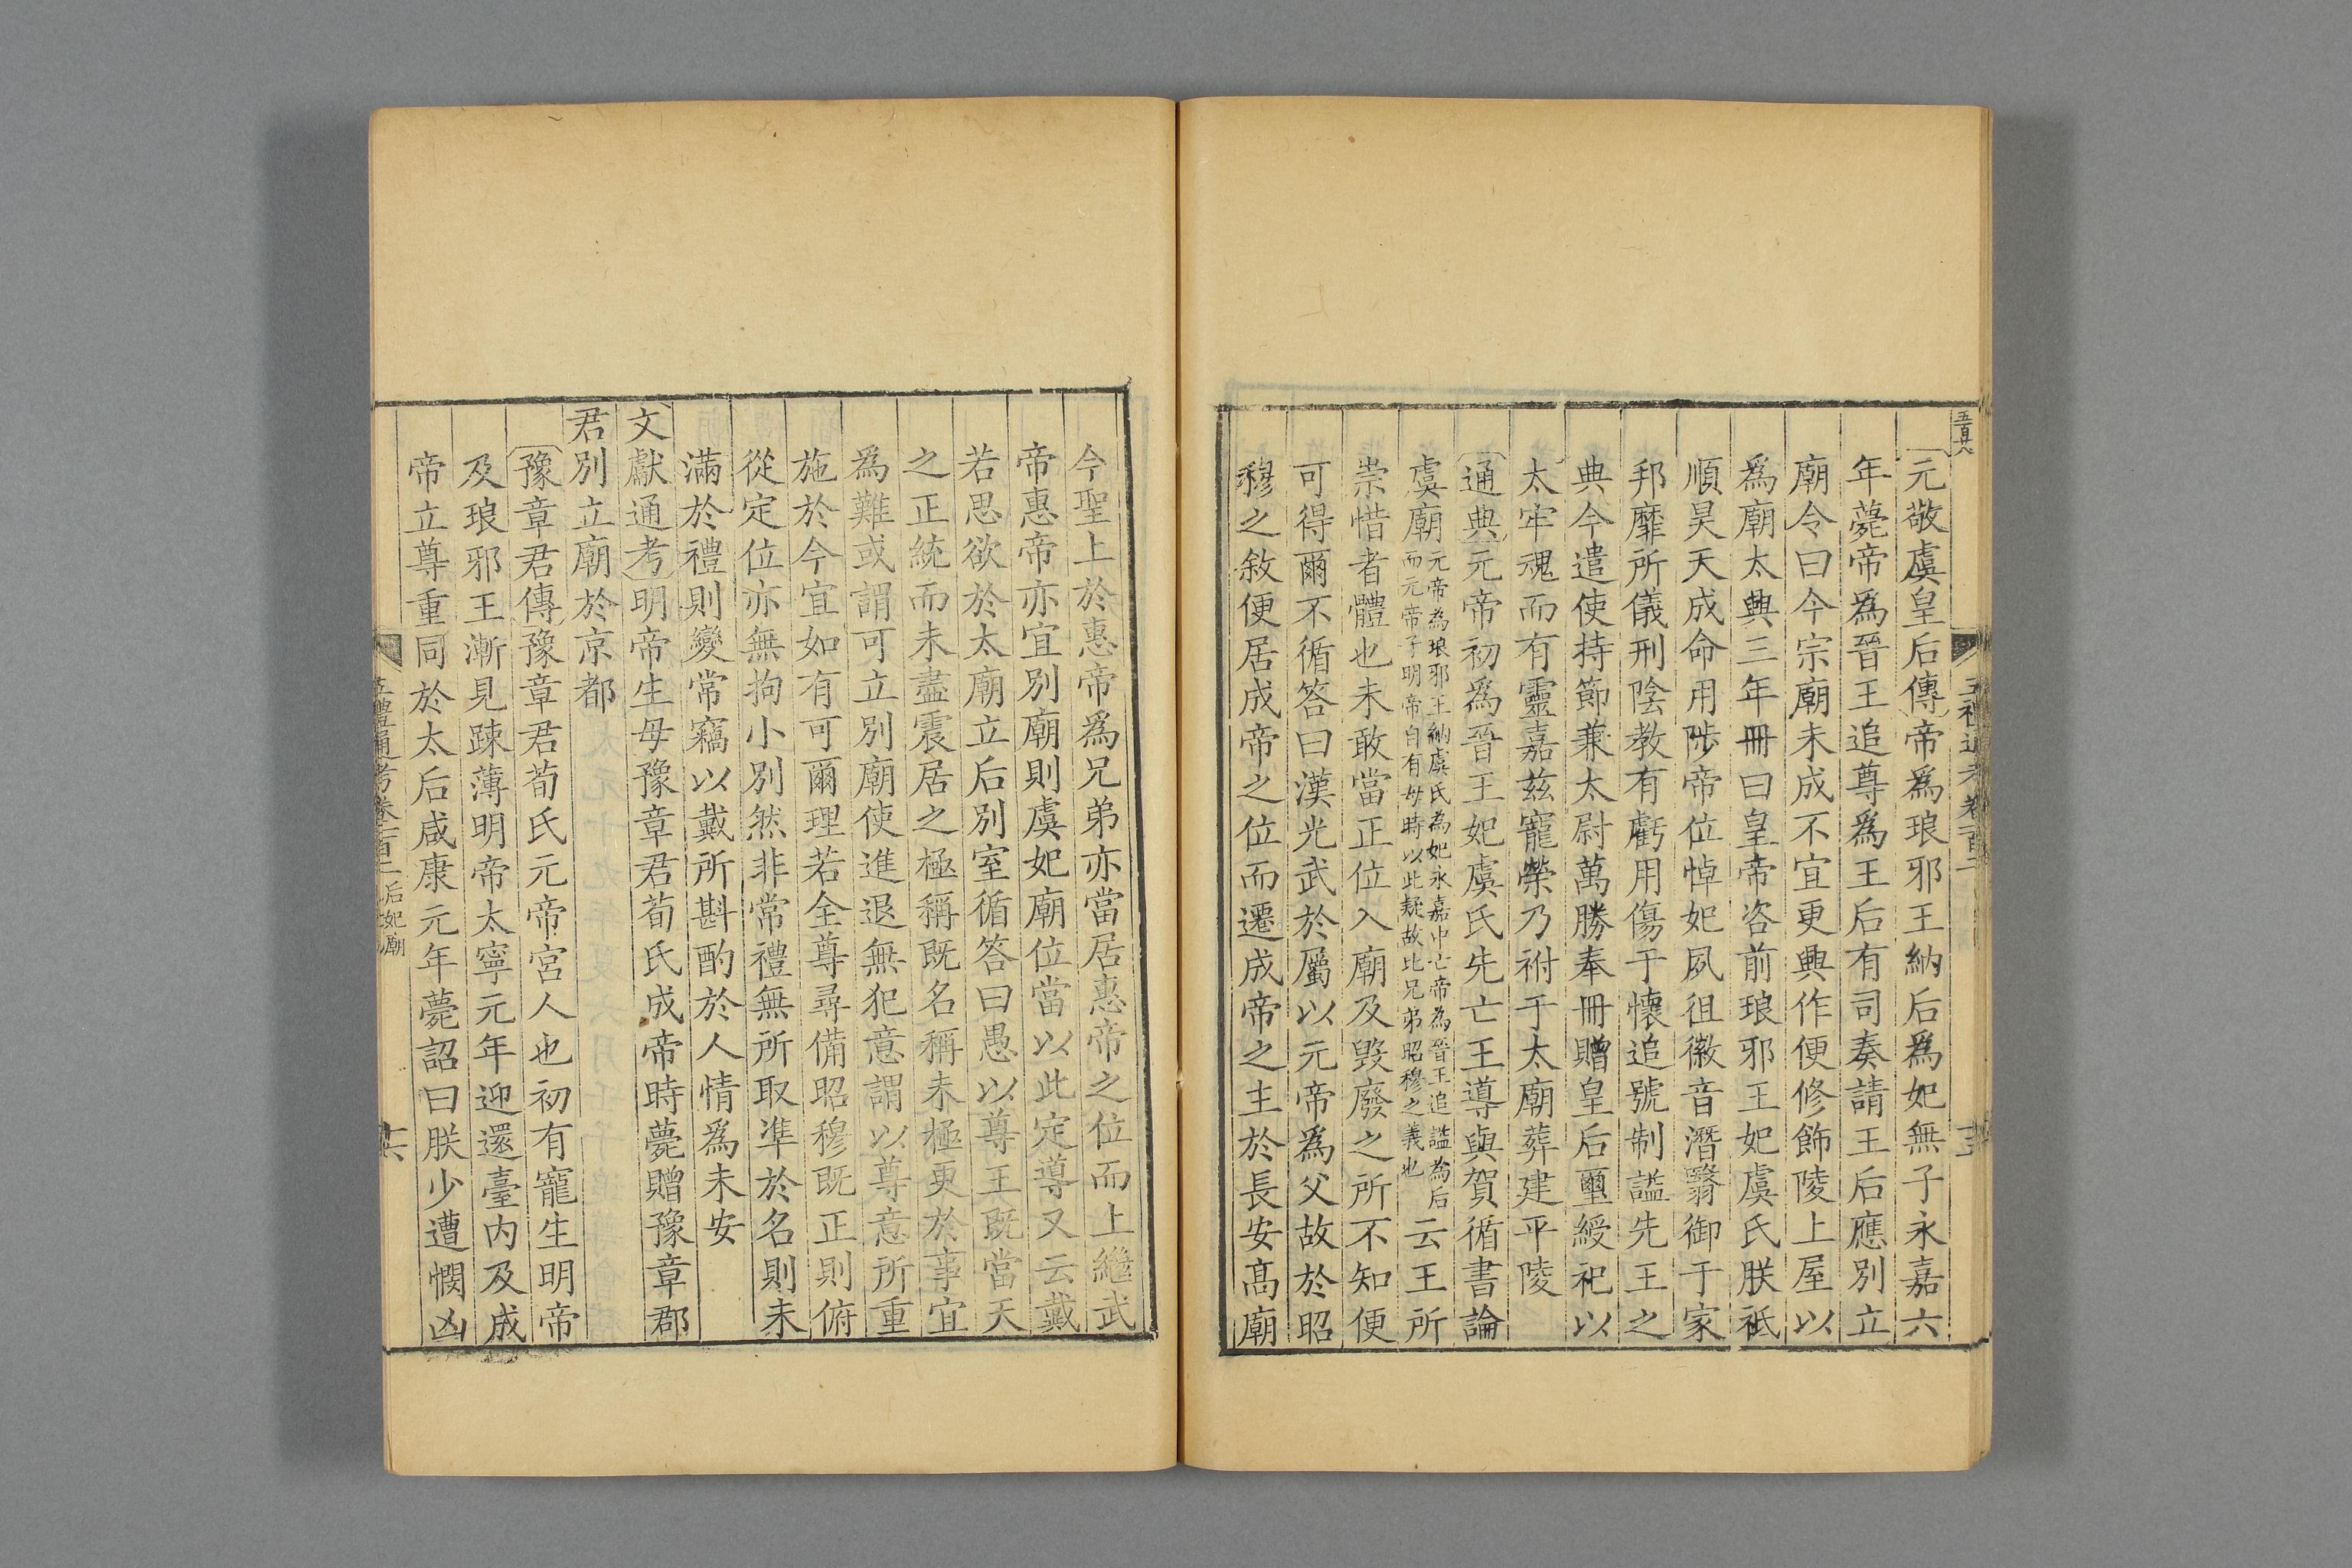 元敬虞皇后傳帝爲琅邪王納后爲妃無子永嘉六
年薨帝爲晉王追尊爲王后有司奏請王后應別立
廟令曰今宗廟未成不宜更興作便修飾陵上屋以
爲廟太興三年冊曰皇帝咨前琅邪王妃虞氏朕祗
順昊天成命用陟帝位悼妃夙徂徽音潛翳御于家
邦靡所儀刑陰教有虧用傷于懷追號制謚先王之
典今遣使持節兼太尉萬勝奉冊贈皇后璽綬祀以
太牢魂而有靈嘉茲寵榮乃祔于太廟葬建平陵
通典元帝初爲晉王妃虞氏先亡王導與賀循書論
虞廟元帝為琅邪王納虞氏為妃永嘉中亡帝為晉王追謚為后而元帝子明帝自有母時以此疑故比兄弟昭穆之義也云王所
崇惜者體也未敢當正位入廟及毀廢之所不知便
可得爾不循答曰漢光武於屬以元帝爲父故於昭
穆之敘便居成帝之位而遷成帝之主於長安高廟
今聖上於惠帝爲兄弟亦當居惠帝之位而上繼武
帝惠帝亦宜別廟則虞妃廟位當以此定導又云戴
若思欲於太廟立后別室循答曰愚以尊王既當天
之正統而未盡震居之極稱既名稱未極更於事宜
爲難或謂可立別廟使進退無犯意謂以尊意所重
施於今宜如有可爾理若全尊尋備昭穆既正則俯
從定位亦無拘小別然非常禮無所取準於名則未
滿於禮則變常竊以戴所斟酌於人情爲未安
文獻通考明帝生母豫章君荀氏成帝時薨贈豫章郡
君別立廟於京都
豫章君傳豫章君荀氏元帝宮人也初有寵生明帝
及琅邪王漸見疎薄明帝太寧元年迎還臺內及成
帝立尊重同於太后咸康元年薨詔曰朕少遭憫凶
五禮通考卷一百二后妃廟